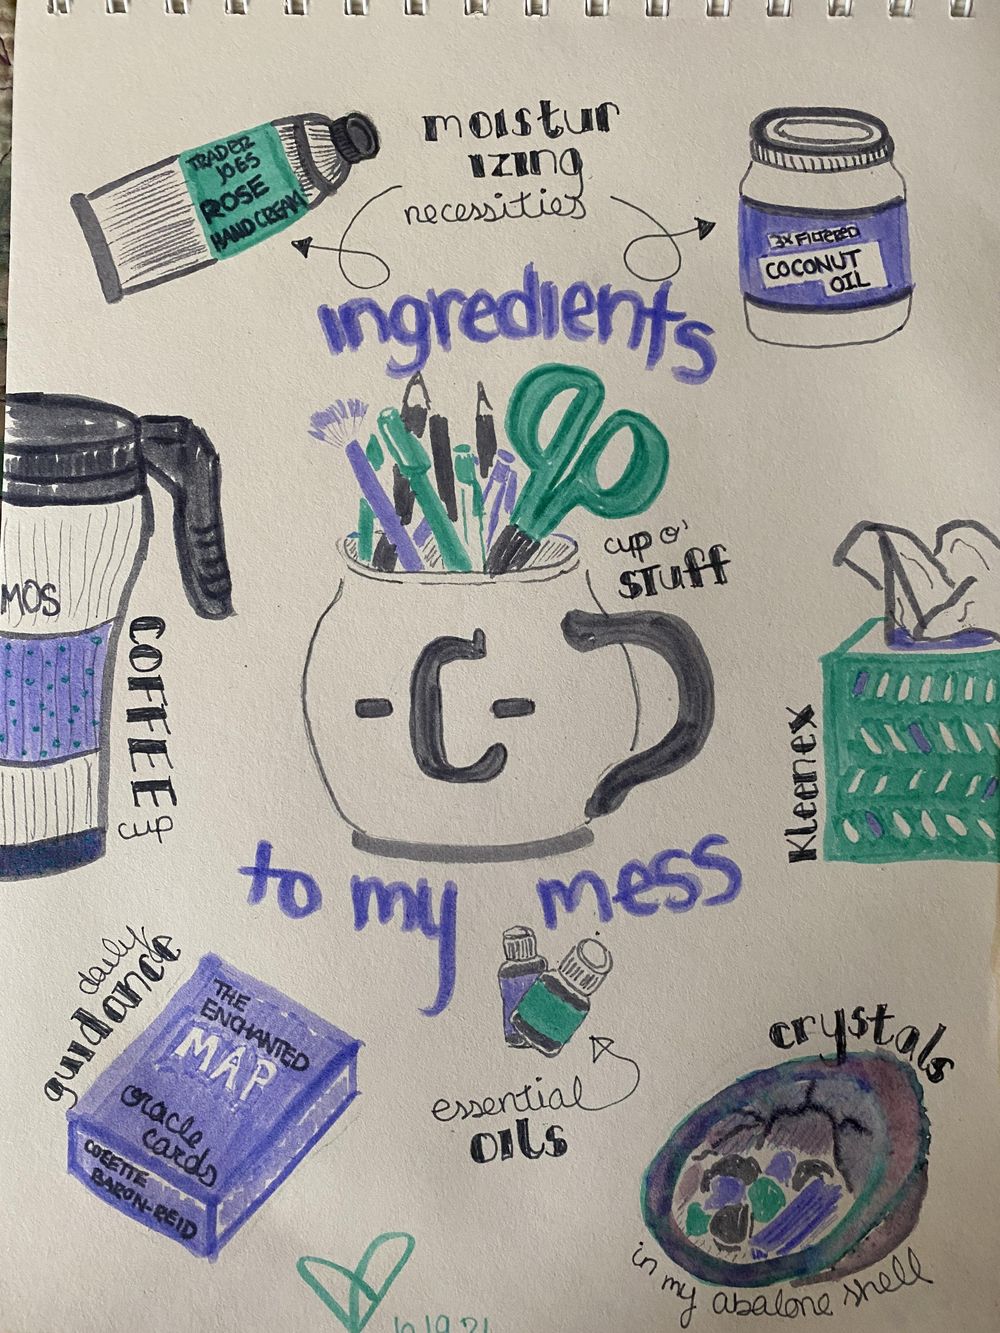 moistur
izing
necessities
TRADER
JOES
ROSE
HAND CREAM
3X FILTERED
COCONUT
OIL
ingredients
cup o'
STUFF
C
MOS
COFFEE
cup
Kleenex
to my mess
daily
guidance
THE
ENCHANTED
MAP
oracle
cards
COLETTE
BARON-REID
essential
OILS
crystals
in my abalone shell